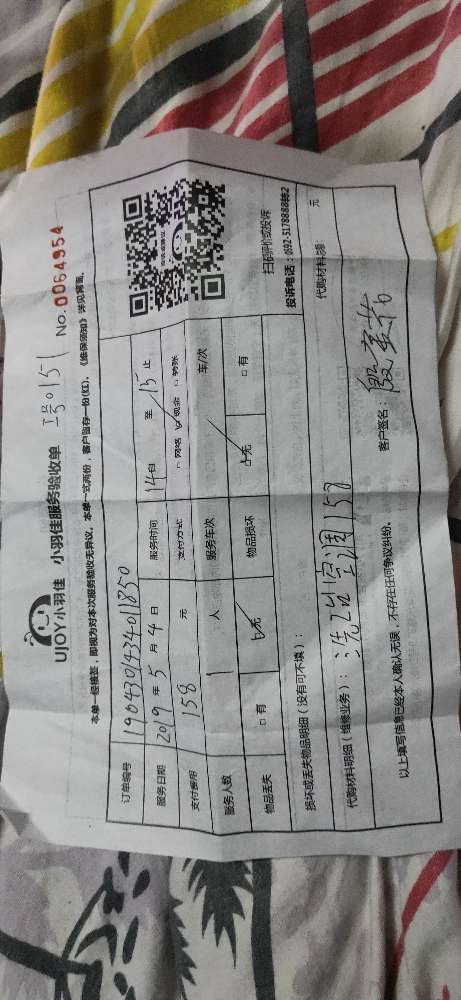 UJOY小羽佳 小羽佳服务验收单 工号0151 No. 0064954
本单一经接签，即视为对本次服务验收无异议，本单一式两份，客户留存一份(红)，《维保须知》详见背面。
订单编号 190430143401850
服务日期 2019 年 5 月 4 日 服务时间 14自 至 15止
支付费用 158 元 支付方式 □网络 ☑现金 □转账
服务人数 1 人 服务车次 车/次
物品丢失 □有 ☑无 物品损坏 ☑无 □有
扫码评价或投诉
投诉电话：0592-5178888转2
损坏或丢失物品明细（没有可不填）：
代购材料明细（维修业务）： 洗1台空调158 代购材料总额： 元
以上填写信息已经本人确认无误，不存在任何争议纠纷。 客户签名：